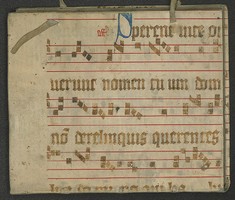 Sperent in te o
uerunt nomen tu um dom
nō derelinquis querentes